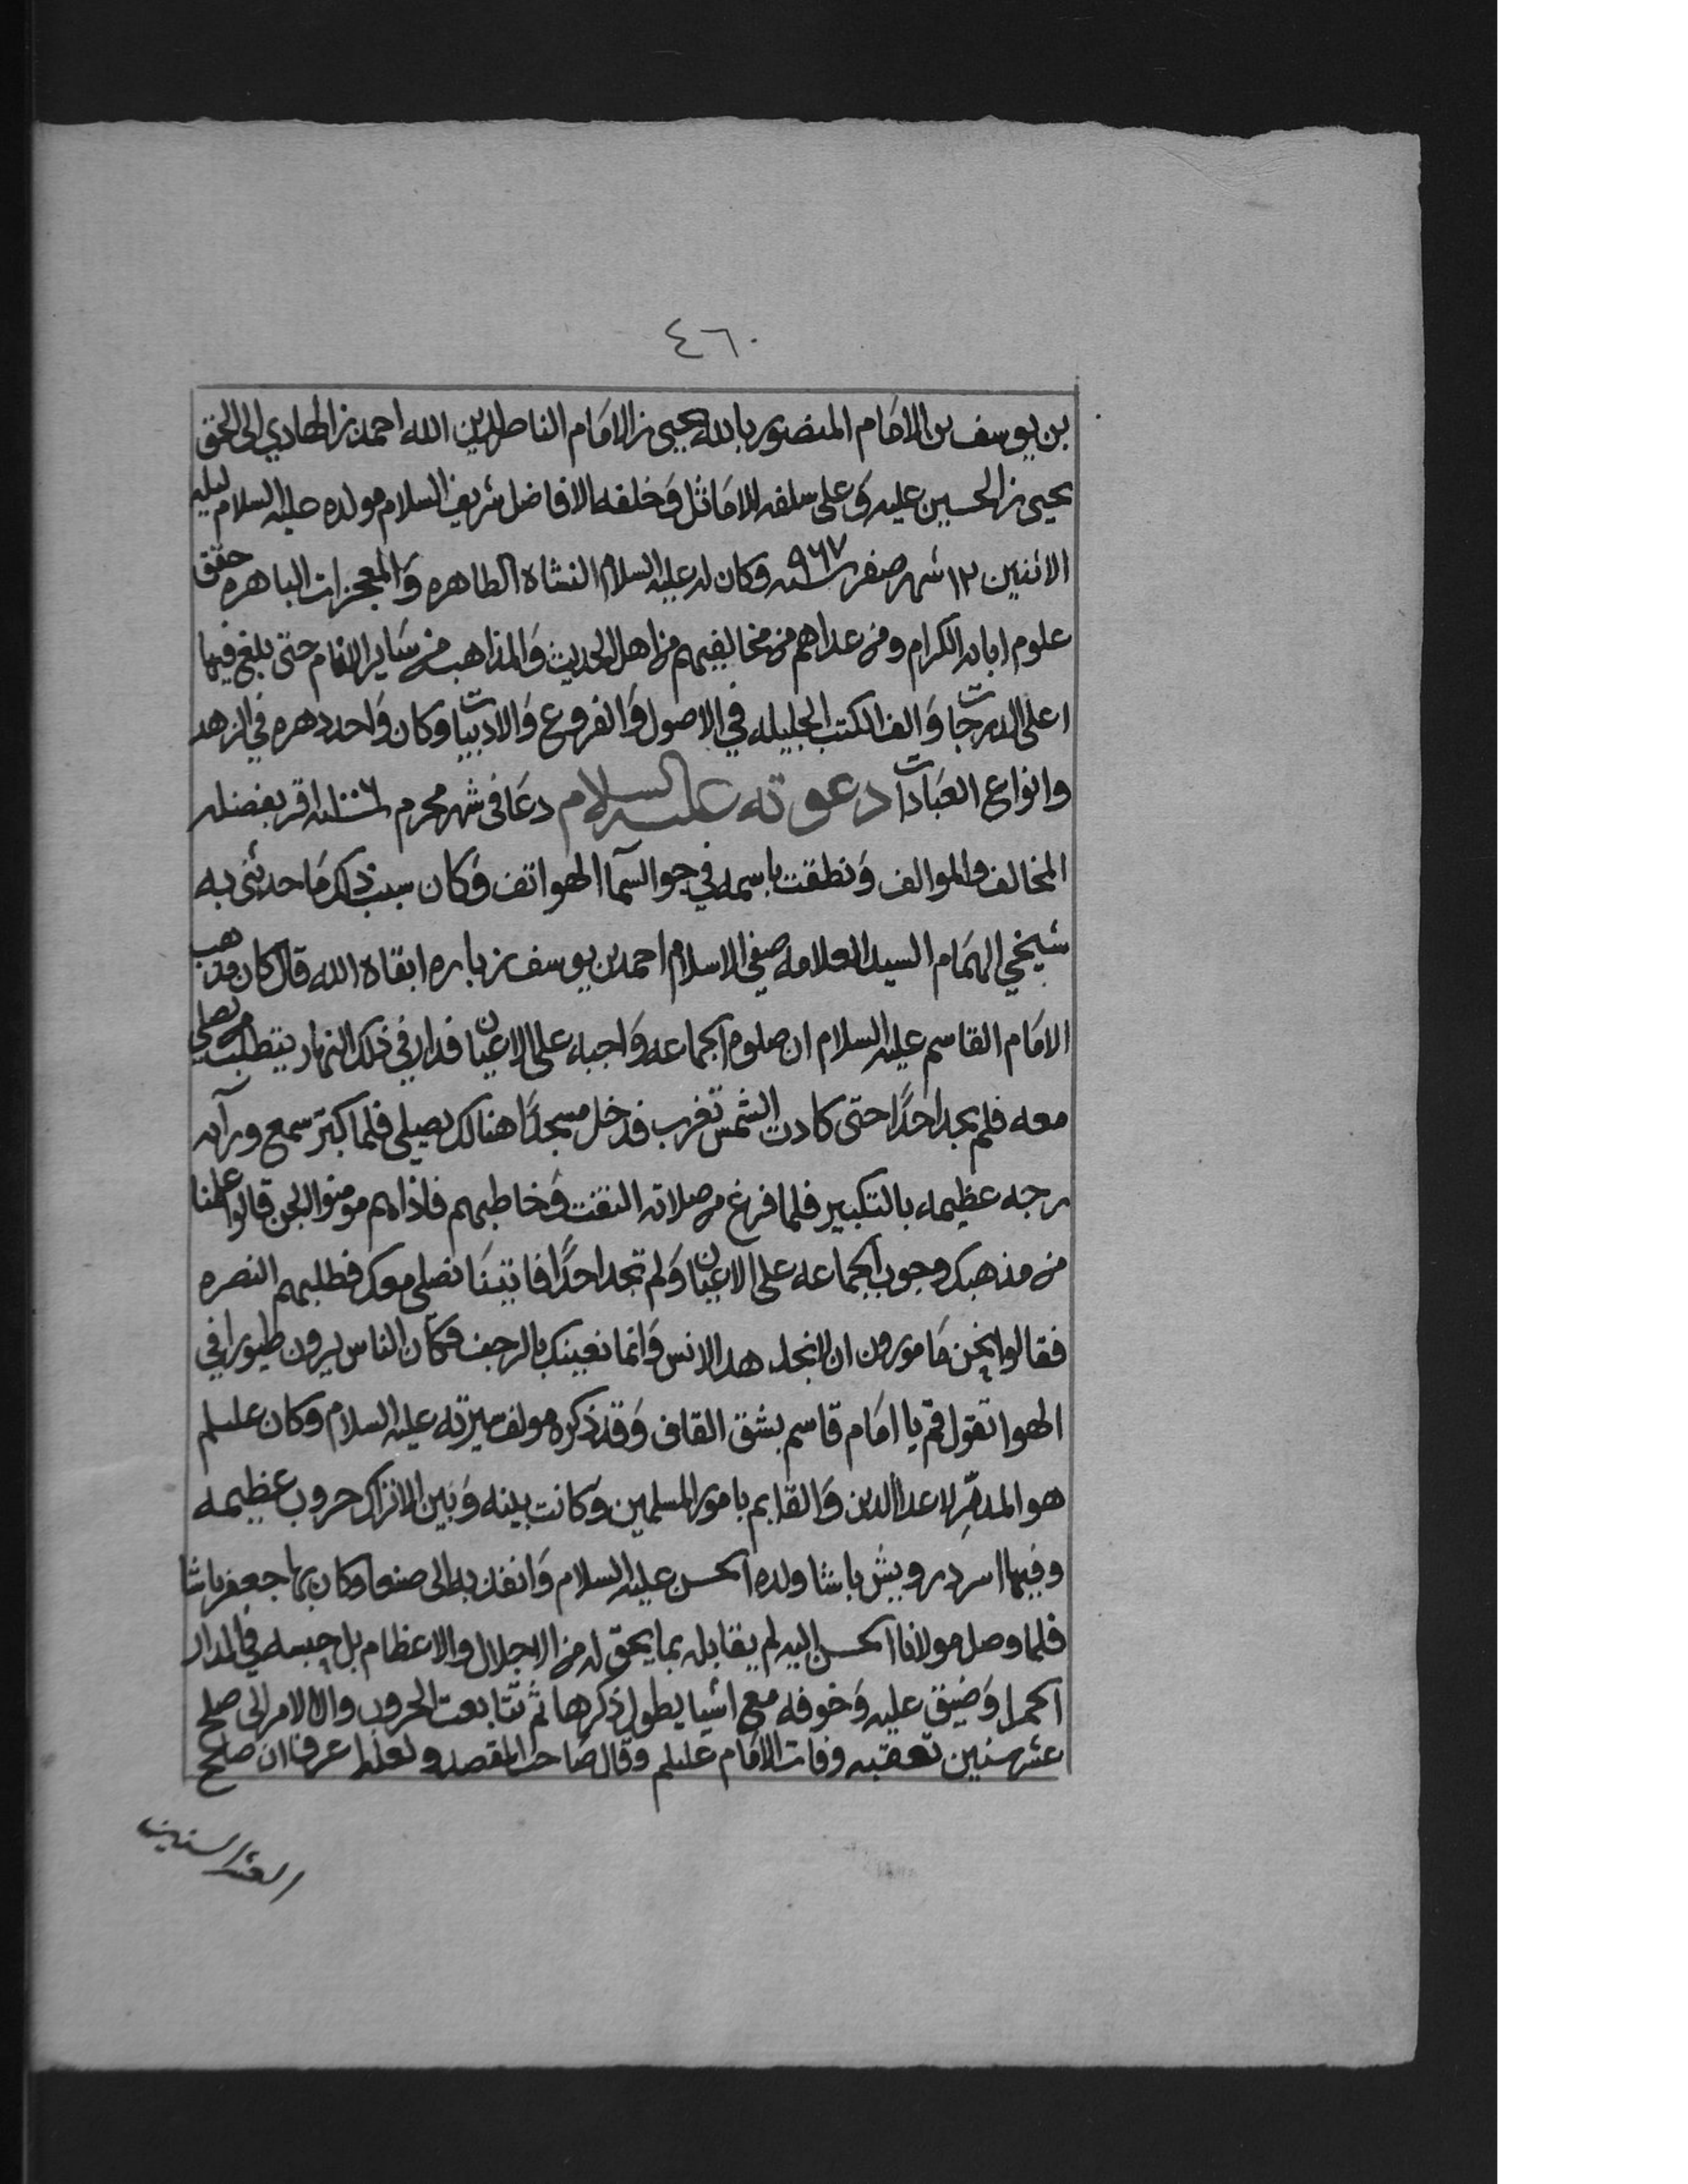 ٤٦٠
بن يوسف بن الامام المنصور بالله يحيى بن الامام الناصر لدين الله احمد بن الهادي الى الحق
يحيى بن الحسين عليه وعلى سلفه الاماثل وخلفه الافاضل شريف السلام مولده عليه السلام ليله
الاثنين ١٢ شهر صفر سنه ٩٦٧ وكان له عليه السلام النشاة الطاهره والمعجزات الباهره حقق
علوم ابايه الكرام ومن عداهم من مخالفيهم من اهل الحديث والمذاهب من ساير الانام حتى بلغ فيها
اعلى الدرجات والف الكتب الجليله في الاصول والفروع والادبيات وكان واحد دهره في الزهد
وانواع العبادات دعوته عليه السلام دعا في شهر محرم سنه ١٠٠٦ اقر بفضله
المخالف والموالف ونطقت باسمه في جو السمآ الهواتف وكان سبب ذلك ما حدثني به
شيخي الهمام السيد العلامه صفي الاسلام احمد بن يوسف زباره ابقاه الله قال كان مذهب
الامام القاسم عليه السلام ان صلوه الجماعه واجبه على الاعيان فدار في ذلك النهار يتطلب من يصلي
معه فلم يجد احدًا حتى كادت الشمس تغرب فدخل مسجدًا هنالك يصلي فلما كبّر سمع ورآه
رجه عظيمه بالتكبير فلما فرغ من صلاته التفت وخاطبهم فاذا هم مومنوا الجن قالوا علمنا
من مذهبك وجوب الجماعه على الاعيان ولم تجد احدًا فاتينا نصلي معك فطلبهم النصره
فقالوا نحن مامورون ان لا نجاهد الانس وانما نعينك بالرجف فكان الناس يرون طيورا في
الهوا تقول قم يا امام قاسم بشق القاف وقد ذكره مولف سيرته عليه السلام وكان عليلم
هو المدمّر لاعدا الدين والقايم بامور المسلمين وكانت بينه وبين الاتراك حروب عظيمه
وفيها اسر درويش باشا ولده الحسن عليه السلام وانفذ به الى صنعا وكان بها جعفر باشا
فلما وصل مولانا الحسن اليه لم يقابله بما يحق له من الاجلال والاعظام بل حبسه في الدار
الحمرا وضيق عليه وخوفه مع اشيا يطول ذكرها ثم تتابعت الحروب وال الامر الى صلح
عشر سنين تعقبه وفات الامام عليلم وقال صاحب المقصد ولعله عرف ان صلح
العشر السنين